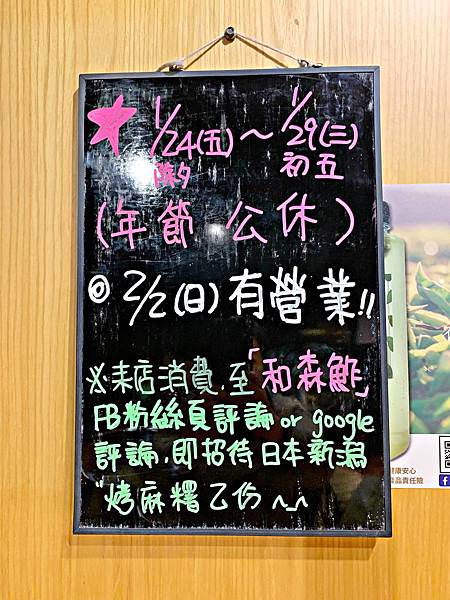 1/24(五)～1/29(三)
除夕 初五
(年節 公休)
◎ 2/2(日)有營業!!
※来店消費,至「和森鮓」
FB粉絲頁評論 or google
評論,即招待日本新潟
"烤麻糬乙份
健康安心
產品責任險